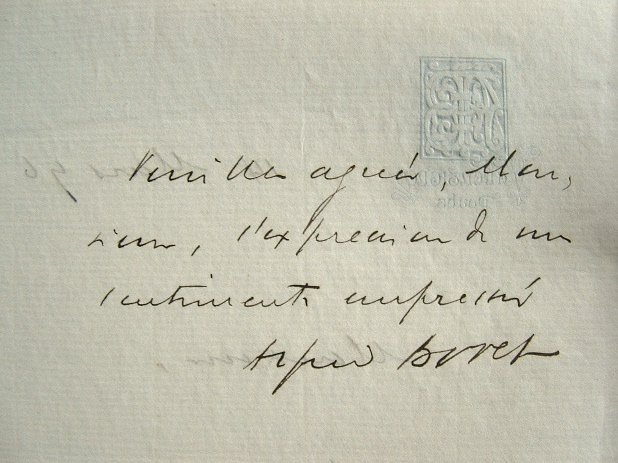 Veuillez agréer, Mon,
sieur, l'expression de mes
sentiments empressés
Alfred Bovet